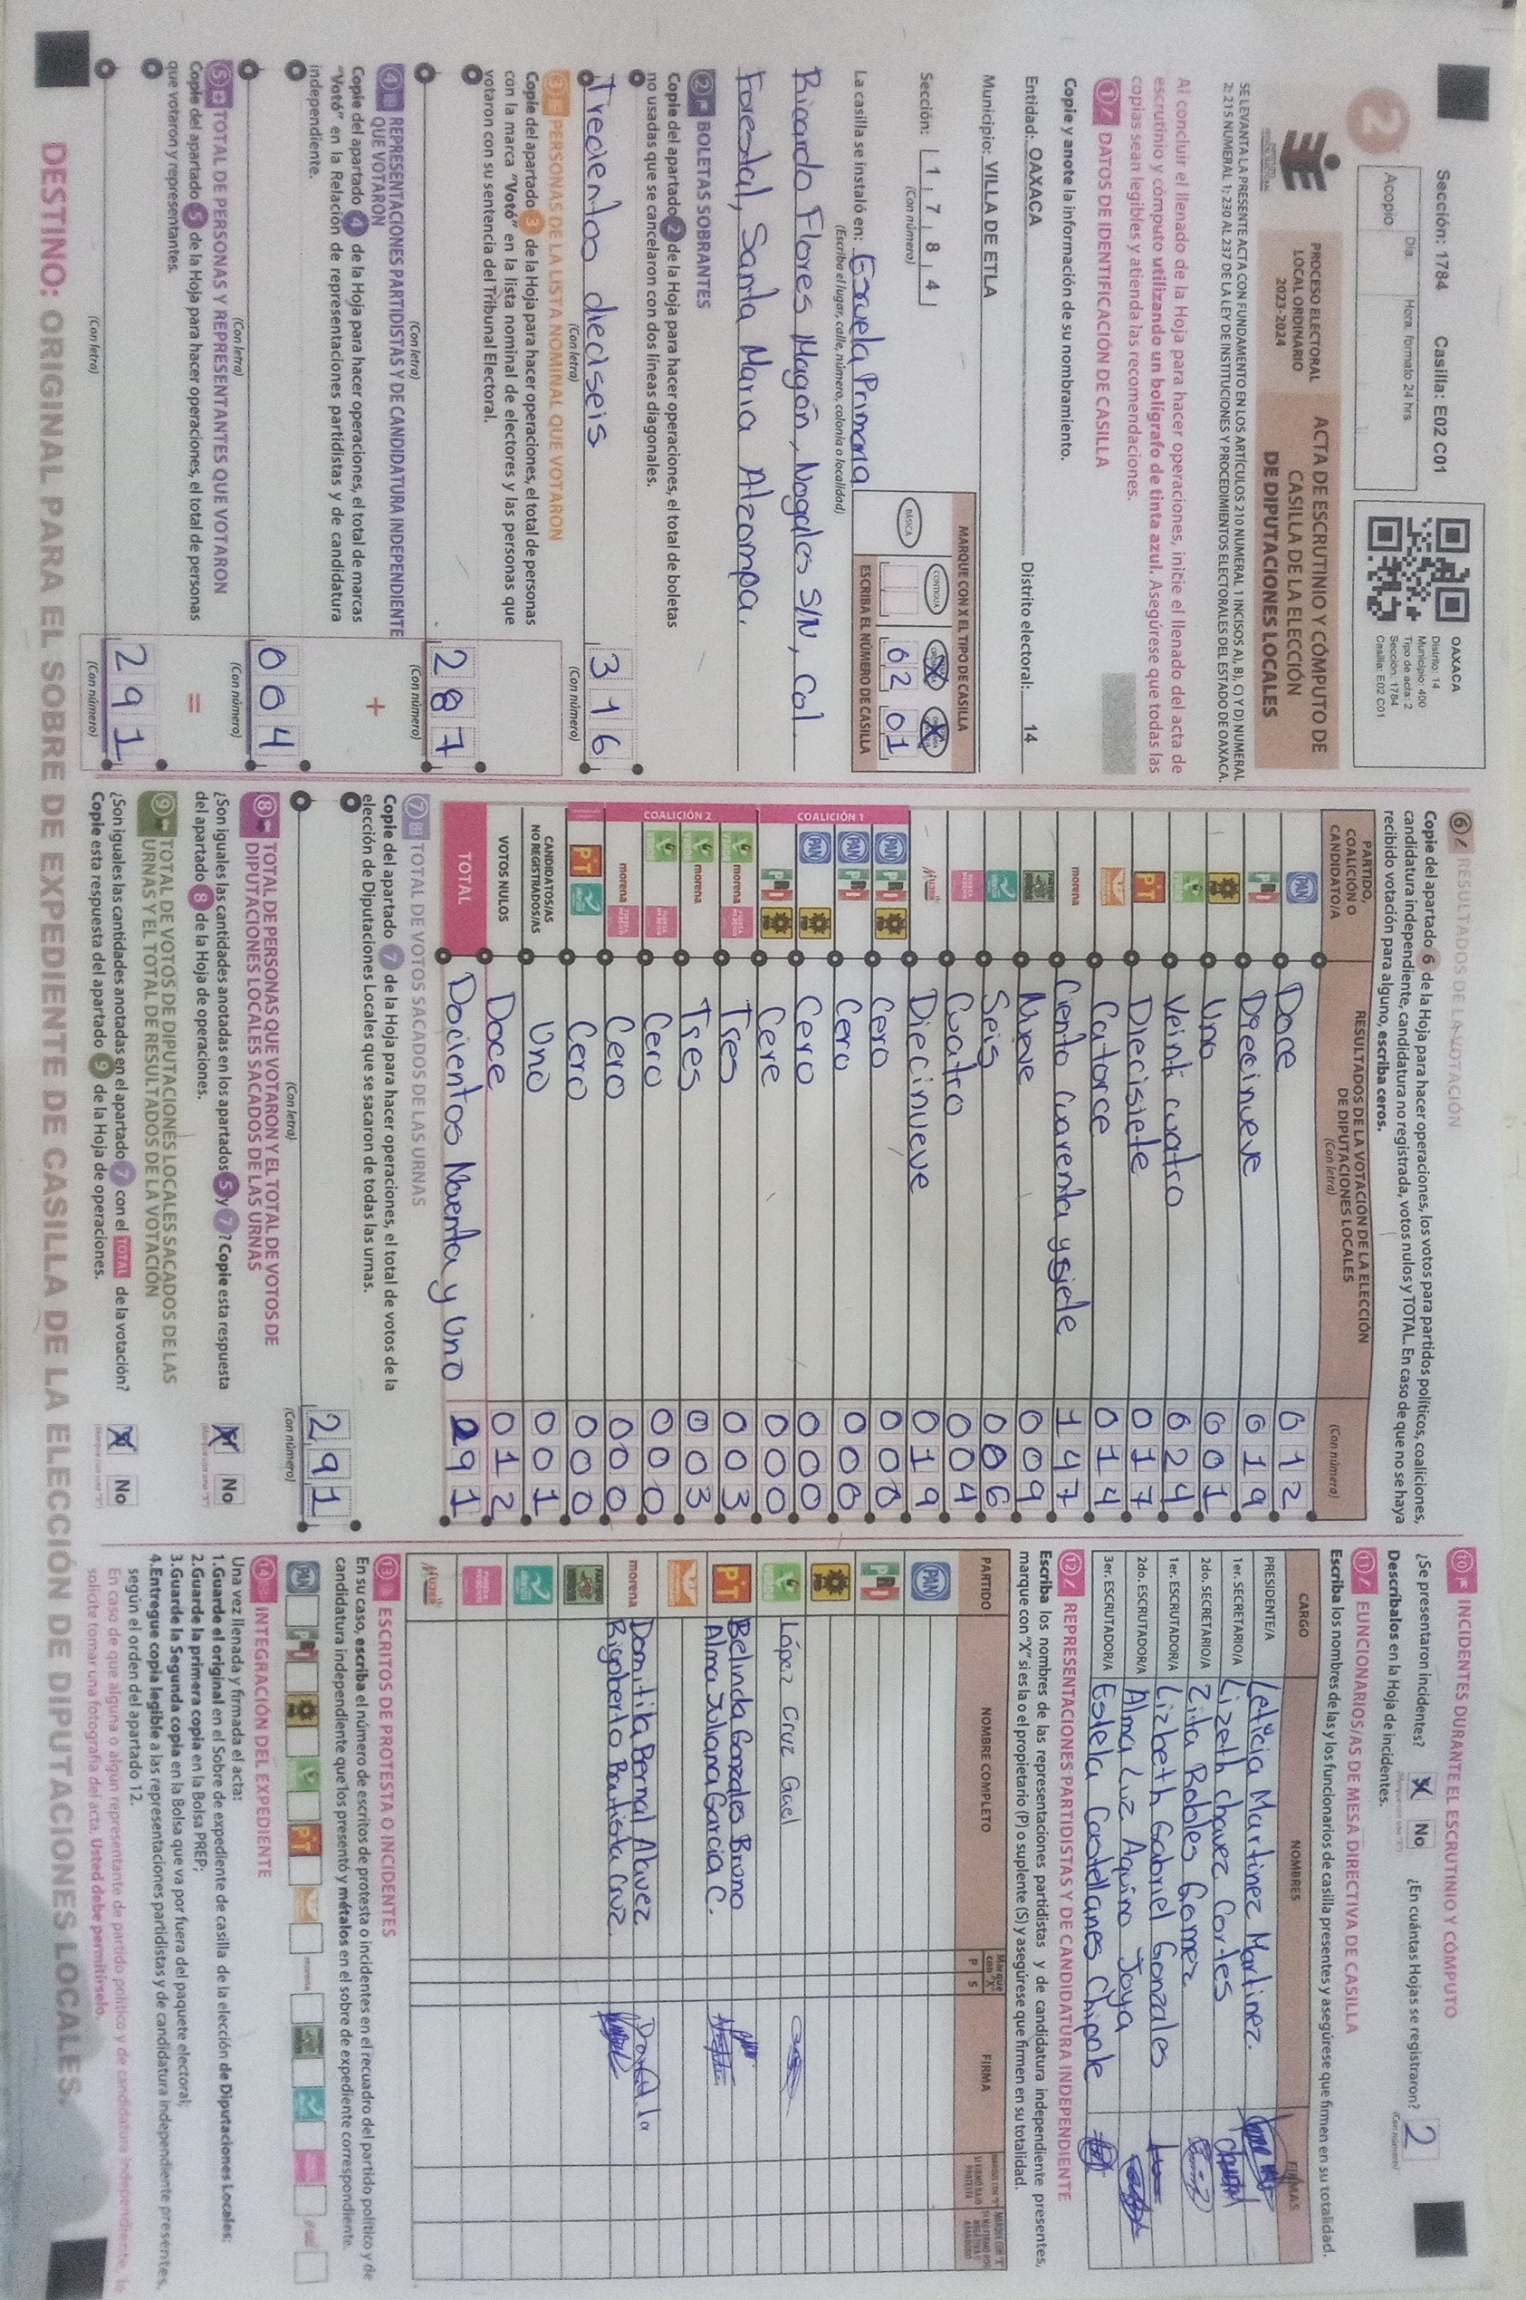 Sección: 1784 Casilla: E02 C01
2
Acopio
Día:
Hora, formato 24 hrs.
OAXACA
Distrito: 14
Municipio: 400
Tipo de acta: 2
Sección: 1784
Casilla: E02 C01
PROCESO ELECTORAL
LOCAL ORDINARIO
2023-2024
ACTA DE ESCRUTINIO Y CÓMPUTO DE
CASILLA DE LA ELECCIÓN
DE DIPUTACIONES LOCALES
SE LEVANTA LA PRESENTE ACTA CON FUNDAMENTO EN LOS ARTÍCULOS 210 NUMERAL 1 INCISOS A), B), C) Y D) NUMERAL
2; 215 NUMERAL 1; 230 AL 237 DE LA LEY DE INSTITUCIONES Y PROCEDIMIENTOS ELECTORALES DEL ESTADO DE OAXACA.
Al concluir el llenado de la Hoja para hacer operaciones, inicie el llenado del acta de
escrutinio y cómputo utilizando un bolígrafo de tinta azul. Asegúrese que todas las
copias sean legibles y atienda las recomendaciones.
1 DATOS DE IDENTIFICACIÓN DE CASILLA
Copie y anote la información de su nombramiento.
Entidad: OAXACA Distrito electoral: 14
Municipio: VILLA DE ETLA
Sección: 1 7 8 4
(Con número)
MARQUE CON X EL TIPO DE CASILLA
BÁSICA CONTIGUA X X
02 01
ESCRIBA EL NÚMERO DE CASILLA
La casilla se instaló en: Escuela Primaria
(Escriba el lugar, calle, número, colonia o localidad)
Ricardo Flores Magón, Nogales S/N, Col.
Forestal, Santa María Atzompa.
2 BOLETAS SOBRANTES
Copie del apartado 2 de la Hoja para hacer operaciones, el total de boletas
no usadas que se cancelaron con dos líneas diagonales.
Trecientos dieciseis 316
(Con letra) (Con número)
3 PERSONAS DE LA LISTA NOMINAL QUE VOTARON
Copie del apartado 3 de la Hoja para hacer operaciones, el total de personas
con la marca "Votó" en la lista nominal de electores y las personas que
votaron con su sentencia del Tribunal Electoral.
287
(Con letra) (Con número)
4 REPRESENTACIONES PARTIDISTAS Y DE CANDIDATURA INDEPENDIENTE
QUE VOTARON
Copie del apartado 4 de la Hoja para hacer operaciones, el total de marcas
"Votó" en la Relación de representaciones partidistas y de candidatura
independiente.
+
004
(Con letra) (Con número)
5 TOTAL DE PERSONAS Y REPRESENTANTES QUE VOTARON
Copie del apartado 5 de la Hoja para hacer operaciones, el total de personas
que votaron y representantes.
=
291
(Con letra) (Con número)
6 RESULTADOS DE LA VOTACIÓN
Copie del apartado 6 de la Hoja para hacer operaciones, los votos para partidos políticos, coaliciones,
candidatura independiente, candidatura no registrada, votos nulos y TOTAL. En caso de que no se haya
recibido votación para alguno, escriba ceros.
PARTIDO,
COALICIÓN O
CANDIDATO/A
RESULTADOS DE LA VOTACIÓN DE LA ELECCIÓN
DE DIPUTACIONES LOCALES
(Con letra) (Con número)
PAN Doce 012
PRI Diecinueve 019
Uno 001
Veinti cuatro 024
PT Diecisiete 017
Catorce 014
morena Ciento Cuarenta y siete 147
Nueve 009
Seis 006
Cuatro 004
Diecinueve 019
COALICIÓN 1
PAN PRI Cero 000
PAN PRI Cero 000
PAN Cero 000
PRI Cere 000
COALICIÓN 2
morena Tres 003
morena Tres 003
Cero 000
morena Cero 000
PT Cero 000
CANDIDATOS/AS
NO REGISTRADOS/AS Uno 001
VOTOS NULOS Doce 012
TOTAL Docientos Noventa y Uno 291
7 TOTAL DE VOTOS SACADOS DE LAS URNAS
Copie del apartado 7 de la Hoja para hacer operaciones, el total de votos de la
elección de Diputaciones Locales que se sacaron de todas las urnas.
291
(Con letra) (Con número)
8 TOTAL DE PERSONAS QUE VOTARON Y EL TOTAL DE VOTOS DE
DIPUTACIONES LOCALES SACADOS DE LAS URNAS
¿Son iguales las cantidades anotadas en los apartados 5 y 7? Copie esta respuesta
del apartado 8 de la Hoja de operaciones.
X No
9 TOTAL DE VOTOS DE DIPUTACIONES LOCALES SACADOS DE LAS
URNAS Y EL TOTAL DE RESULTADOS DE LA VOTACIÓN
¿Son iguales las cantidades anotadas en el apartado 7 con el TOTAL de la votación?
Copie esta respuesta del apartado 9 de la Hoja de operaciones.
X No
10 INCIDENTES DURANTE EL ESCRUTINIO Y CÓMPUTO
¿Se presentaron incidentes? X No ¿En cuántas Hojas se registraron? 2
(Con número)
Descríbalos en la Hoja de incidentes.
11 FUNCIONARIOS/AS DE MESA DIRECTIVA DE CASILLA
Escriba los nombres de las y los funcionarios de casilla presentes y asegúrese que firmen en su totalidad.
CARGO NOMBRES FIRMAS
PRESIDENTE/A Leticia Martinez Martinez.
1er. SECRETARIO/A Lizeth chavez Cortes
2do. SECRETARIO/A Zita Robles Gomez
1er. ESCRUTADOR/A Lizbeth Gabriel Gonzales
2do. ESCRUTADOR/A Alma Luz Aquino Joya
3er. ESCRUTADOR/A Estela Castellanos Chipole
12 REPRESENTACIONES PARTIDISTAS Y DE CANDIDATURA INDEPENDIENTE
Escriba los nombres de las representaciones partidistas y de candidatura independiente presentes,
marque con "X" si es la o el propietario (P) o suplente (S) y asegúrese que firmen en su totalidad.
PARTIDO NOMBRE COMPLETO Marque con "X" P S FIRMA
PAN
PRI
López Cruz Gael
PT Belinda Gonzales Bruno
Alma Juliana Garcia C.
morena Donitila Bernal Alavez
Rigoberto Bautista Cruz.
13 ESCRITOS DE PROTESTA O INCIDENTES
En su caso, escriba el número de escritos de protesta o incidentes en el recuadro del partido político y de
candidatura independiente que los presentó y métalos en el sobre de expediente correspondiente.
PAN PRI PT morena
14 INTEGRACIÓN DEL EXPEDIENTE
Una vez llenada y firmada el acta:
1.Guarde el original en el Sobre de expediente de casilla de la elección de Diputaciones Locales;
2.Guarde la primera copia en la Bolsa PREP;
3.Guarde la Segunda copia en la Bolsa que va por fuera del paquete electoral;
4.Entregue copia legible a las representaciones partidistas y de candidatura independiente presentes,
según el orden del apartado 12.
En caso de que alguna o algún representante de partido político y de candidatura independiente, le
solicite tomar una fotografía del acta. Usted debe permitírselo.
DESTINO: ORIGINAL PARA EL SOBRE DE EXPEDIENTE DE CASILLA DE LA ELECCIÓN DE DIPUTACIONES LOCALES.